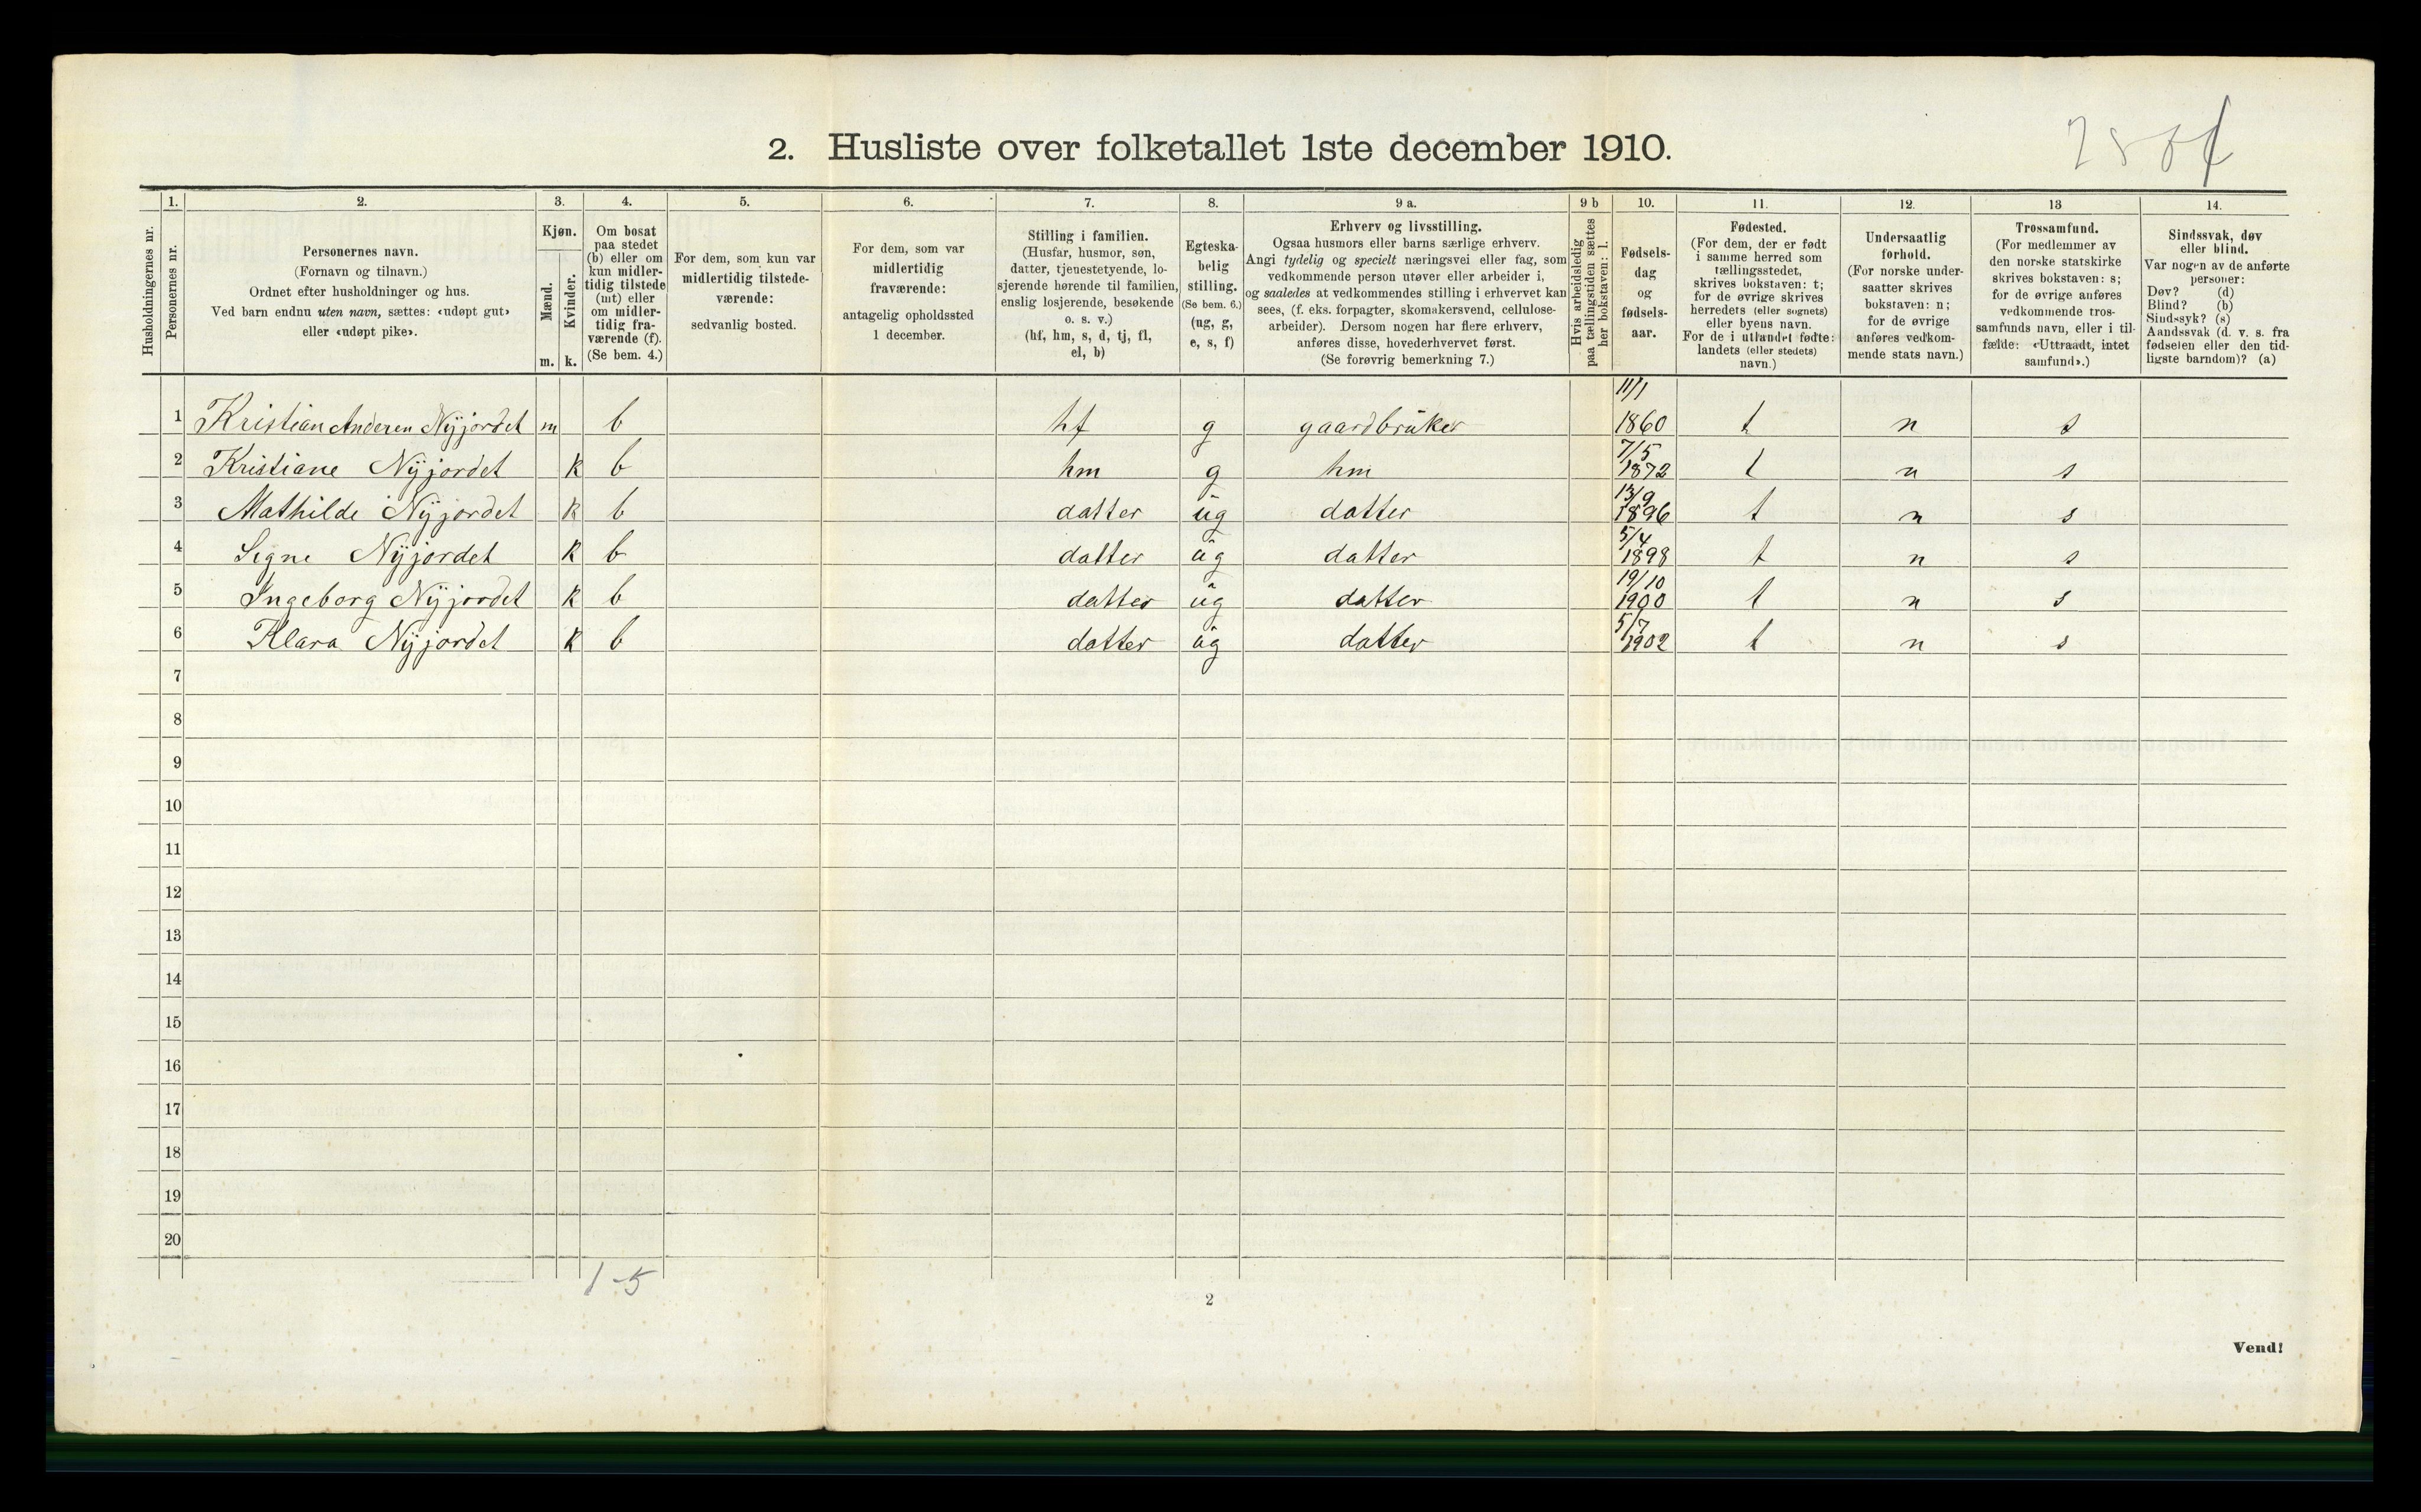 2. Husliste over folketallet 1ste december 1910.
Husholdningernes nr.
1. Personernes nr.
2. Personernes navn. (Fornavn og tilnavn.) Ordnet efter husholdninger og hus. Ved barn endnu uten navn, sættes: «udøpt gut» eller «udøpt pike».
3. Kjøn. Mænd. m. Kvinder. k.
4. Om bosat paa stedet (b) eller om kun midlertidig tilstede (mt) eller om midlertidig fraværende (f). (Se bem. 4.)
5. For dem, som kun var midlertidig tilstedeværende: sedvanlig bosted.
6. For dem, som var midlertidig fraværende: antagelig opholdssted 1 december.
7. Stilling i familien. (Husfar, husmor, søn, datter, tjenestetyende, losjerende hørende til familien, enslig losjerende, besøkende o. s. v.) (hf, hm, s, d, tj, fl, el, b)
8. Egteskabelig stilling. (Se bem. 6.) (ug, g, e, s, f)
9 a. Erhverv og livsstilling. Ogsaa husmors eller barns særlige erhverv. Angi tydelig og specielt næringsvei eller fag, som vedkommende person utøver eller arbeider i, og saaledes at vedkommendes stilling i erhvervet kan sees, (f. eks. forpagter, skomakersvend, cellulosearbeider). Dersom nogen har flere erhverv, anføres disse, hovederhvervet først. (Se forøvrig bemerkning 7.)
9 b Hvis arbeidsledig paa tællingstiden sættes her bokstaven: l.
10. Fødselsdag og fødselsaar.
11. Fødested. (For dem, der er født i samme herred som tællingsstedet, skrives bokstaven: t; for de øvrige skrives herredets (eller sognets) eller byens navn. For de i utlandet fødte: landets (eller stedets) navn.)
12. Undersaatlig forhold. (For norske undersaatter skrives bokstaven: n; for de øvrige anføres vedkommende stats navn.)
13 Trossamfund. (For medlemmer av den norske statskirke skrives bokstaven: s; for de øvrige anføres vedkommende trossamfunds navn, eller i tilfælde: «Uttraadt, intet samfund».)
14. Sindssvak, døv eller blind. Var nogen av de anførte personer: Døv? (d) Blind? (b) Sindssyk? (s) Aandssvak (d. v. s. fra fødselen eller den tidligste barndom)? (a)
1 Kristian Andersen Nyjordet m b hf g gaardbruker 11/1 1860 t n s
2 Kristiane Nyjordet k b hm g hm 7/5 1872 t n s
3 Mathilde Nyjordet k b datter ug datter 13/9 1896 t n s
4 Signe Nyjordet k b datter ug datter 5/4 1898 t n s
5 Ingeborg Nyjordet k b datter ug datter 19/10 1900 t n s
6 Klara Nyjordet k b datter ug datter 5/7 1902 t n s
7
8
9
10
11
12
13
14
15
16
17
18
19
20
1-5
2
Vend!